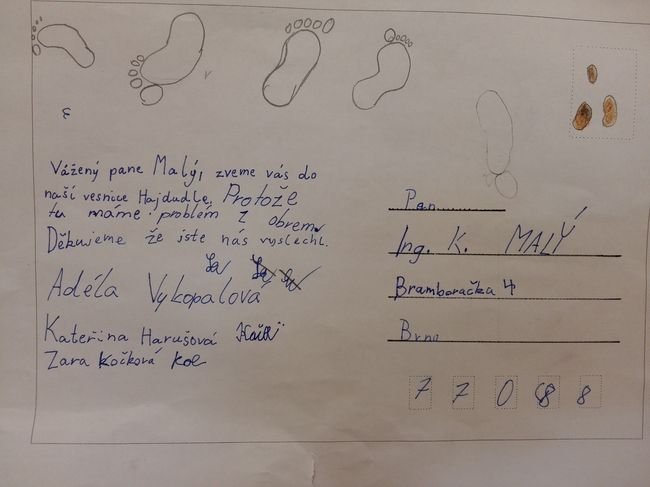 Vážený pane Malý, zveme vás do
naší vesnice Hajdudle. Protože
tu máme problém z obrem.
Děkujeme že jste nás vyslechl.
Adéla Vykopalová
Kateřina Harušová
Zara Kočková
Pan
Ing. K. MALÝ
Bramboračka 4
Brno
7 7 0 8 8